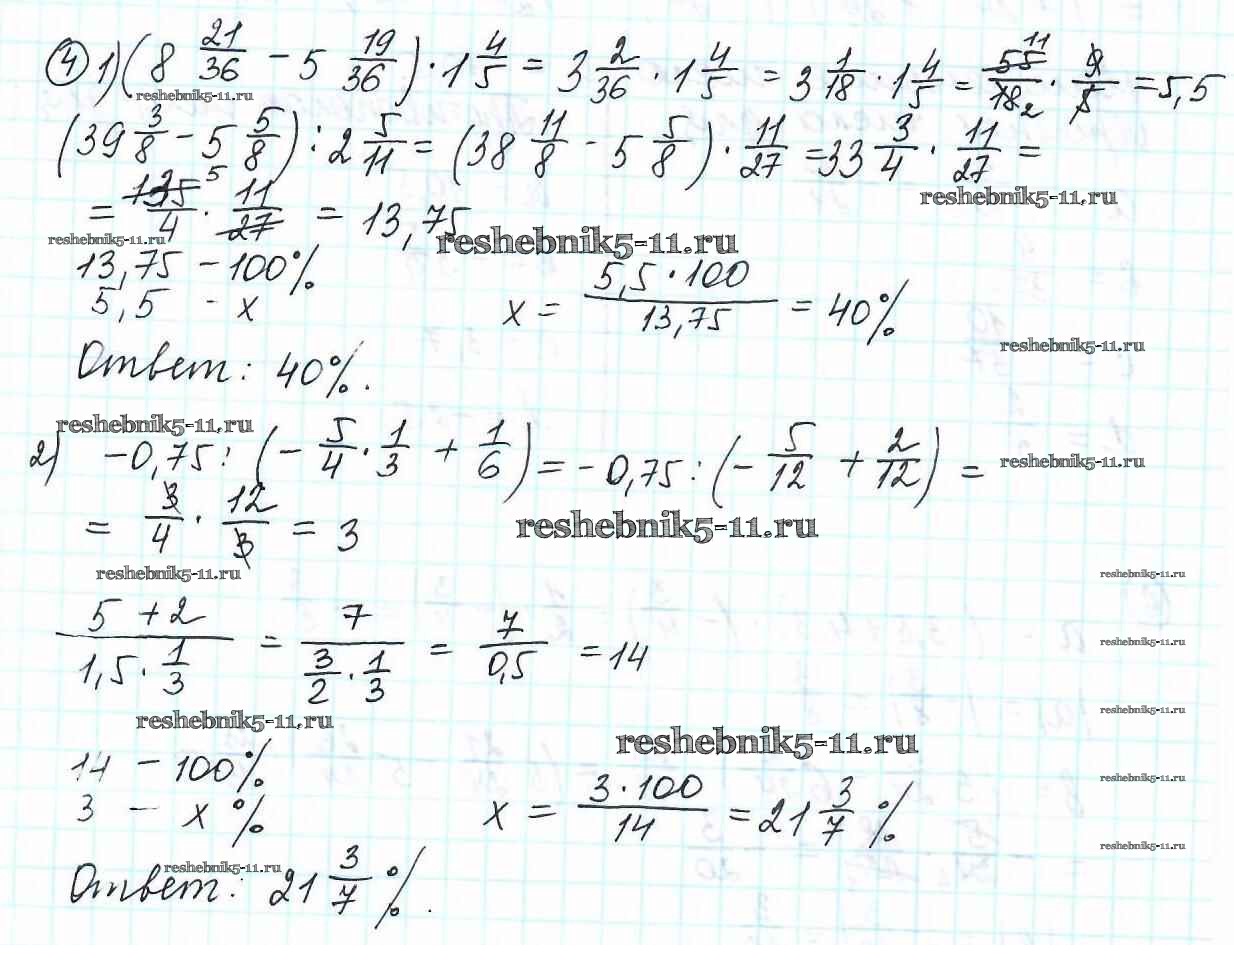 ④ 1) (8 21/36 − 5 19/36) · 1 4/5 = 3 2/36 · 1 4/5 = 3 1/18 · 1 4/5 = 55 11/18 2 · 9/5 = 5,5
reshebnik5-11.ru
(39 3/8 − 5 5/8) : 2 5/11 = (38 11/8 − 5 5/8) · 11/27 = 33 3/4 · 11/27 =
reshebnik5-11.ru
= 135 5/4 · 11/27 = 13,75
reshebnik5-11.ru
reshebnik5-11.ru
13,75 − 100%
5,5 − x x = 5,5 · 100/13,75 = 40%
reshebnik5-11.ru
Ответ: 40%.
reshebnik5-11.ru
2) −0,75 : (− 5/4 · 1/3 + 1/6) = −0,75 : (− 5/12 + 2/12) =
reshebnik5-11.ru
= 3/4 · 12/3 = 3
reshebnik5-11.ru
reshebnik5-11.ru
reshebnik5-11.ru
5 + 2/1,5 · 1/3 = 7/3/2 · 1/3 = 7/0,5 = 14
reshebnik5-11.ru
reshebnik5-11.ru
reshebnik5-11.ru
reshebnik5-11.ru
14 − 100%
reshebnik5-11.ru
3 − x % x = 3 · 100/14 = 21 3/7 %
reshebnik5-11.ru
reshebnik5-11.ru
Ответ: 21 3/7 %.